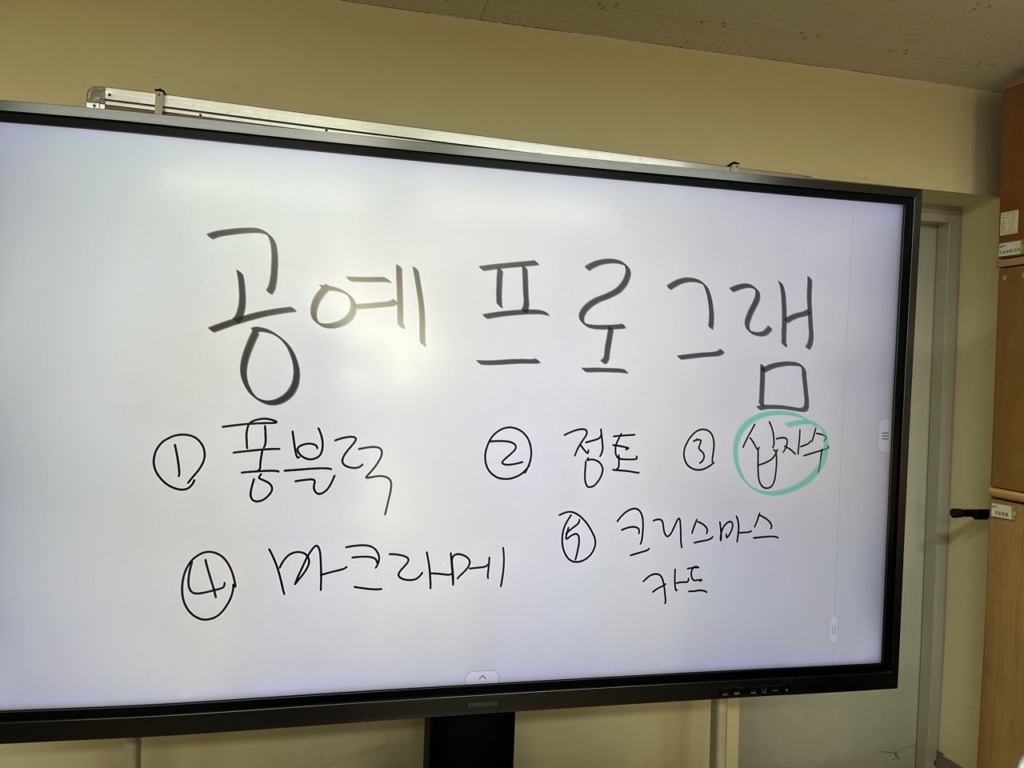 공예 프로그램
① 퐁블럭 ② 점토 ③ 십자수
④ 마크라메 ⑤ 크리스마스
카드
SAMSUNG